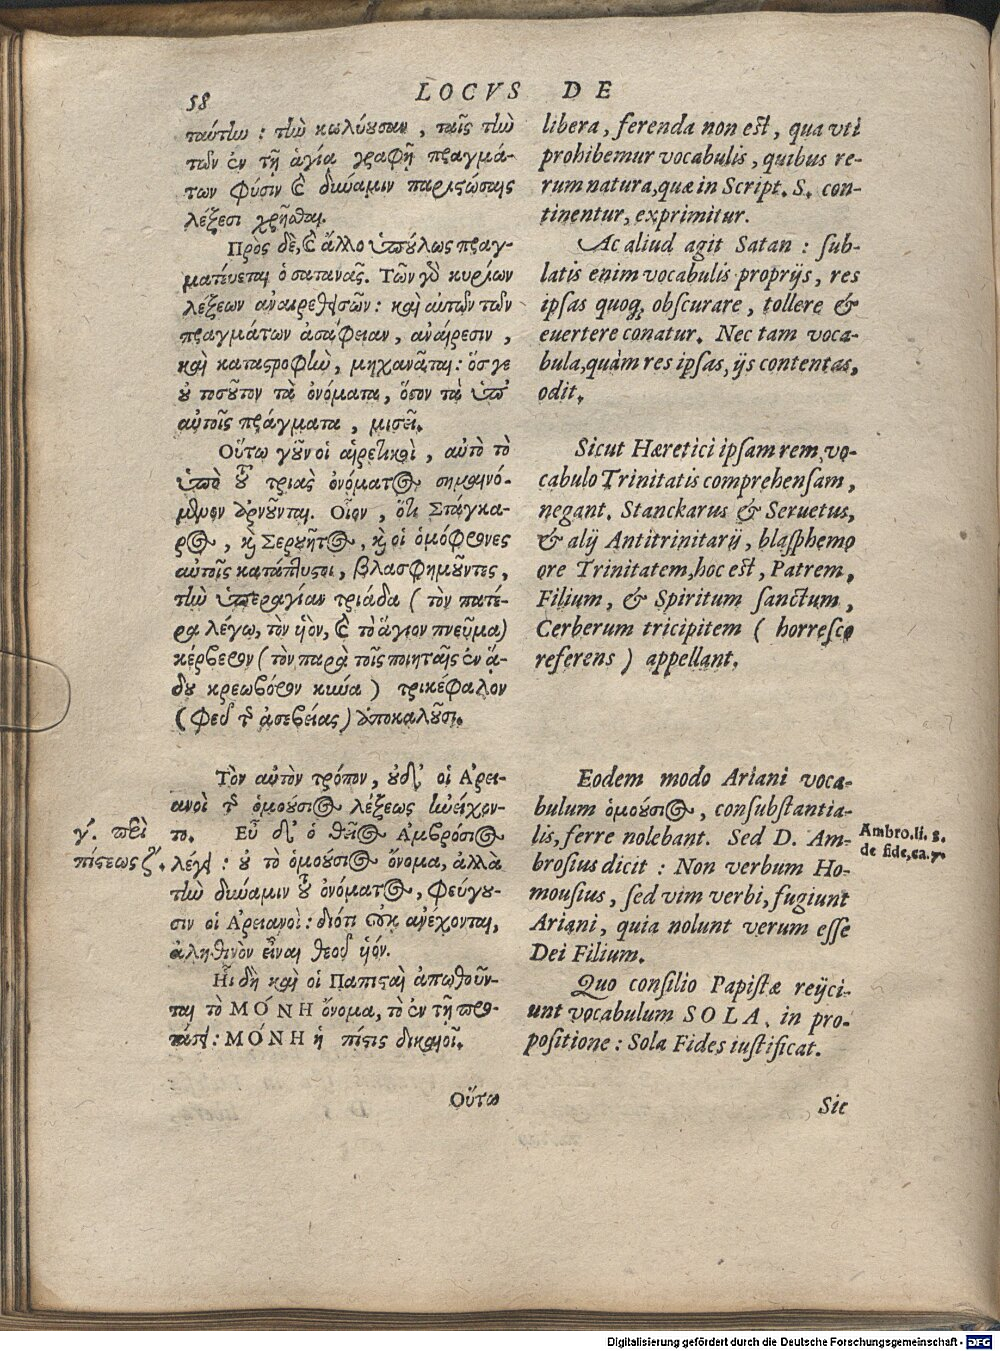 58
LOCVS DE
ταύτην: τὴν κωλύουσαν, ταῖς τὴν
τῶν ἐν τῇ ἁγίᾳ γραφῇ πραγμά-
των φύσιν καὶ δύναμιν παριστώσαις
λέξεσι χρῆσθαι.
Πρὸς δὲ, καὶ ἄλλο ὑπούλως πραγ-
ματεύεται ὁ σατανᾶς. Τῶν γὸ κυρίων
λέξεων ἀναιρεθεισῶν: καὶ αὐτῶν τῶν
πραγμάτων ἀσάφειαν, ἀναίρεσιν,
καὶ καταστροφὴν, μηχανᾶται: ὅς γε
οὐ τοσοῦτον τὰ ὀνόματα, ὅσον τὰ ὑπ'
αὐτοῖς πράγματα, μισεῖ.
Οὕτω γοῦν οἱ αἱρετικοὶ, αὐτὸ τὸ
ὑπὸ τοῦ τριὰς ὀνόματος σημαινό-
μενον ἀρνοῦνται. Οἷον, ὅτι Στάγκα-
ρος, καὶ Σερουῆτος, καὶ οἱ ὁμόφρονες
αὐτοῖς κατάπτυστοι, βλασφημοῦντες,
τὴν ὑπεραγίαν τριάδα (τὸν πατέ-
ρα λέγω, τὸν ὑὸν, καὶ τὸ ἅγιον πνεῦμα)
κέρβερον (τὸν παρὰ τοῖς ποιηταῖς ἐν ᾅ-
δου κρεωβόρον κύνα) τρικέφαλον
(φεῦ τῆς ἀσεβείας) ἀποκαλοῦσι.
Τὸν αὐτὸν τρόπον, οὐδ' οἱ Ἀρει-
ανοὶ τῆς ὁμούσιος λέξεως ἠνείχον-
το. Εὖ δ' ὁ θεῖος Ἀμβρόσιος
λέγει: οὐ τὸ ὁμούσιος ὄνομα, ἀλλὰ
τὴν δύναμιν τοῦ ὀνόματος, φεύγου-
σιν οἱ Ἀρειανοὶ: διότι οὐκ ἀνέχονται,
ἀληθινὸν εἶναι θεοῦ ὑόν.
Ἧι δὴ καὶ οἱ Παπισταὶ ἀπωθοῦν-
ται τὸ ΜΌΝΗ ὄνομα, τὸ ἐν τῇ προ-
τάσει: ΜΌΝΗ ἡ πίστις δικαιοῖ.
Οὕτω
γ'. περὶ
πίστεως ζ'.
libera, ferenda non est, qua vti
prohibemur vocabulis, quibus re-
rum natura, quæ in Script. S. con-
tinentur, exprimitur.
Ac aliud agit Satan: sub-
latis enim vocabulis proprijs, res
ipsas quoq; obscurare, tollere &
euertere conatur. Nec tam voca-
bula, quàm res ipsas, ijs contentas,
odit.
Sicut Hæretici ipsam rem, vo-
cabulo Trinitatis comprehensam,
negant. Stanckarus & Seruetus,
& alij Antitrinitarij, blasphemo
ore Trinitatem, hoc est, Patrem,
Filium, & Spiritum sanctum,
Cerberum tricipitem (horresco
referens) appellant.
Eodem modo Ariani voca-
bulum ὁμούσιος, consubstantia-
lis, ferre nolebant. Sed D. Am-
brosius dicit: Non verbum Ho-
mousius, sed vim verbi, fugiunt
Ariani, quia nolunt verum esse
Dei Filium.
Quo consilio Papistæ reijci-
unt vocabulum SOLA, in pro-
positione: Sola Fides iustificat.
Sic
Ambro. li. 3.
de fide, ca. 7.
Digitalisierung gefördert durch die Deutsche Forschungsgemeinschaft - DFG